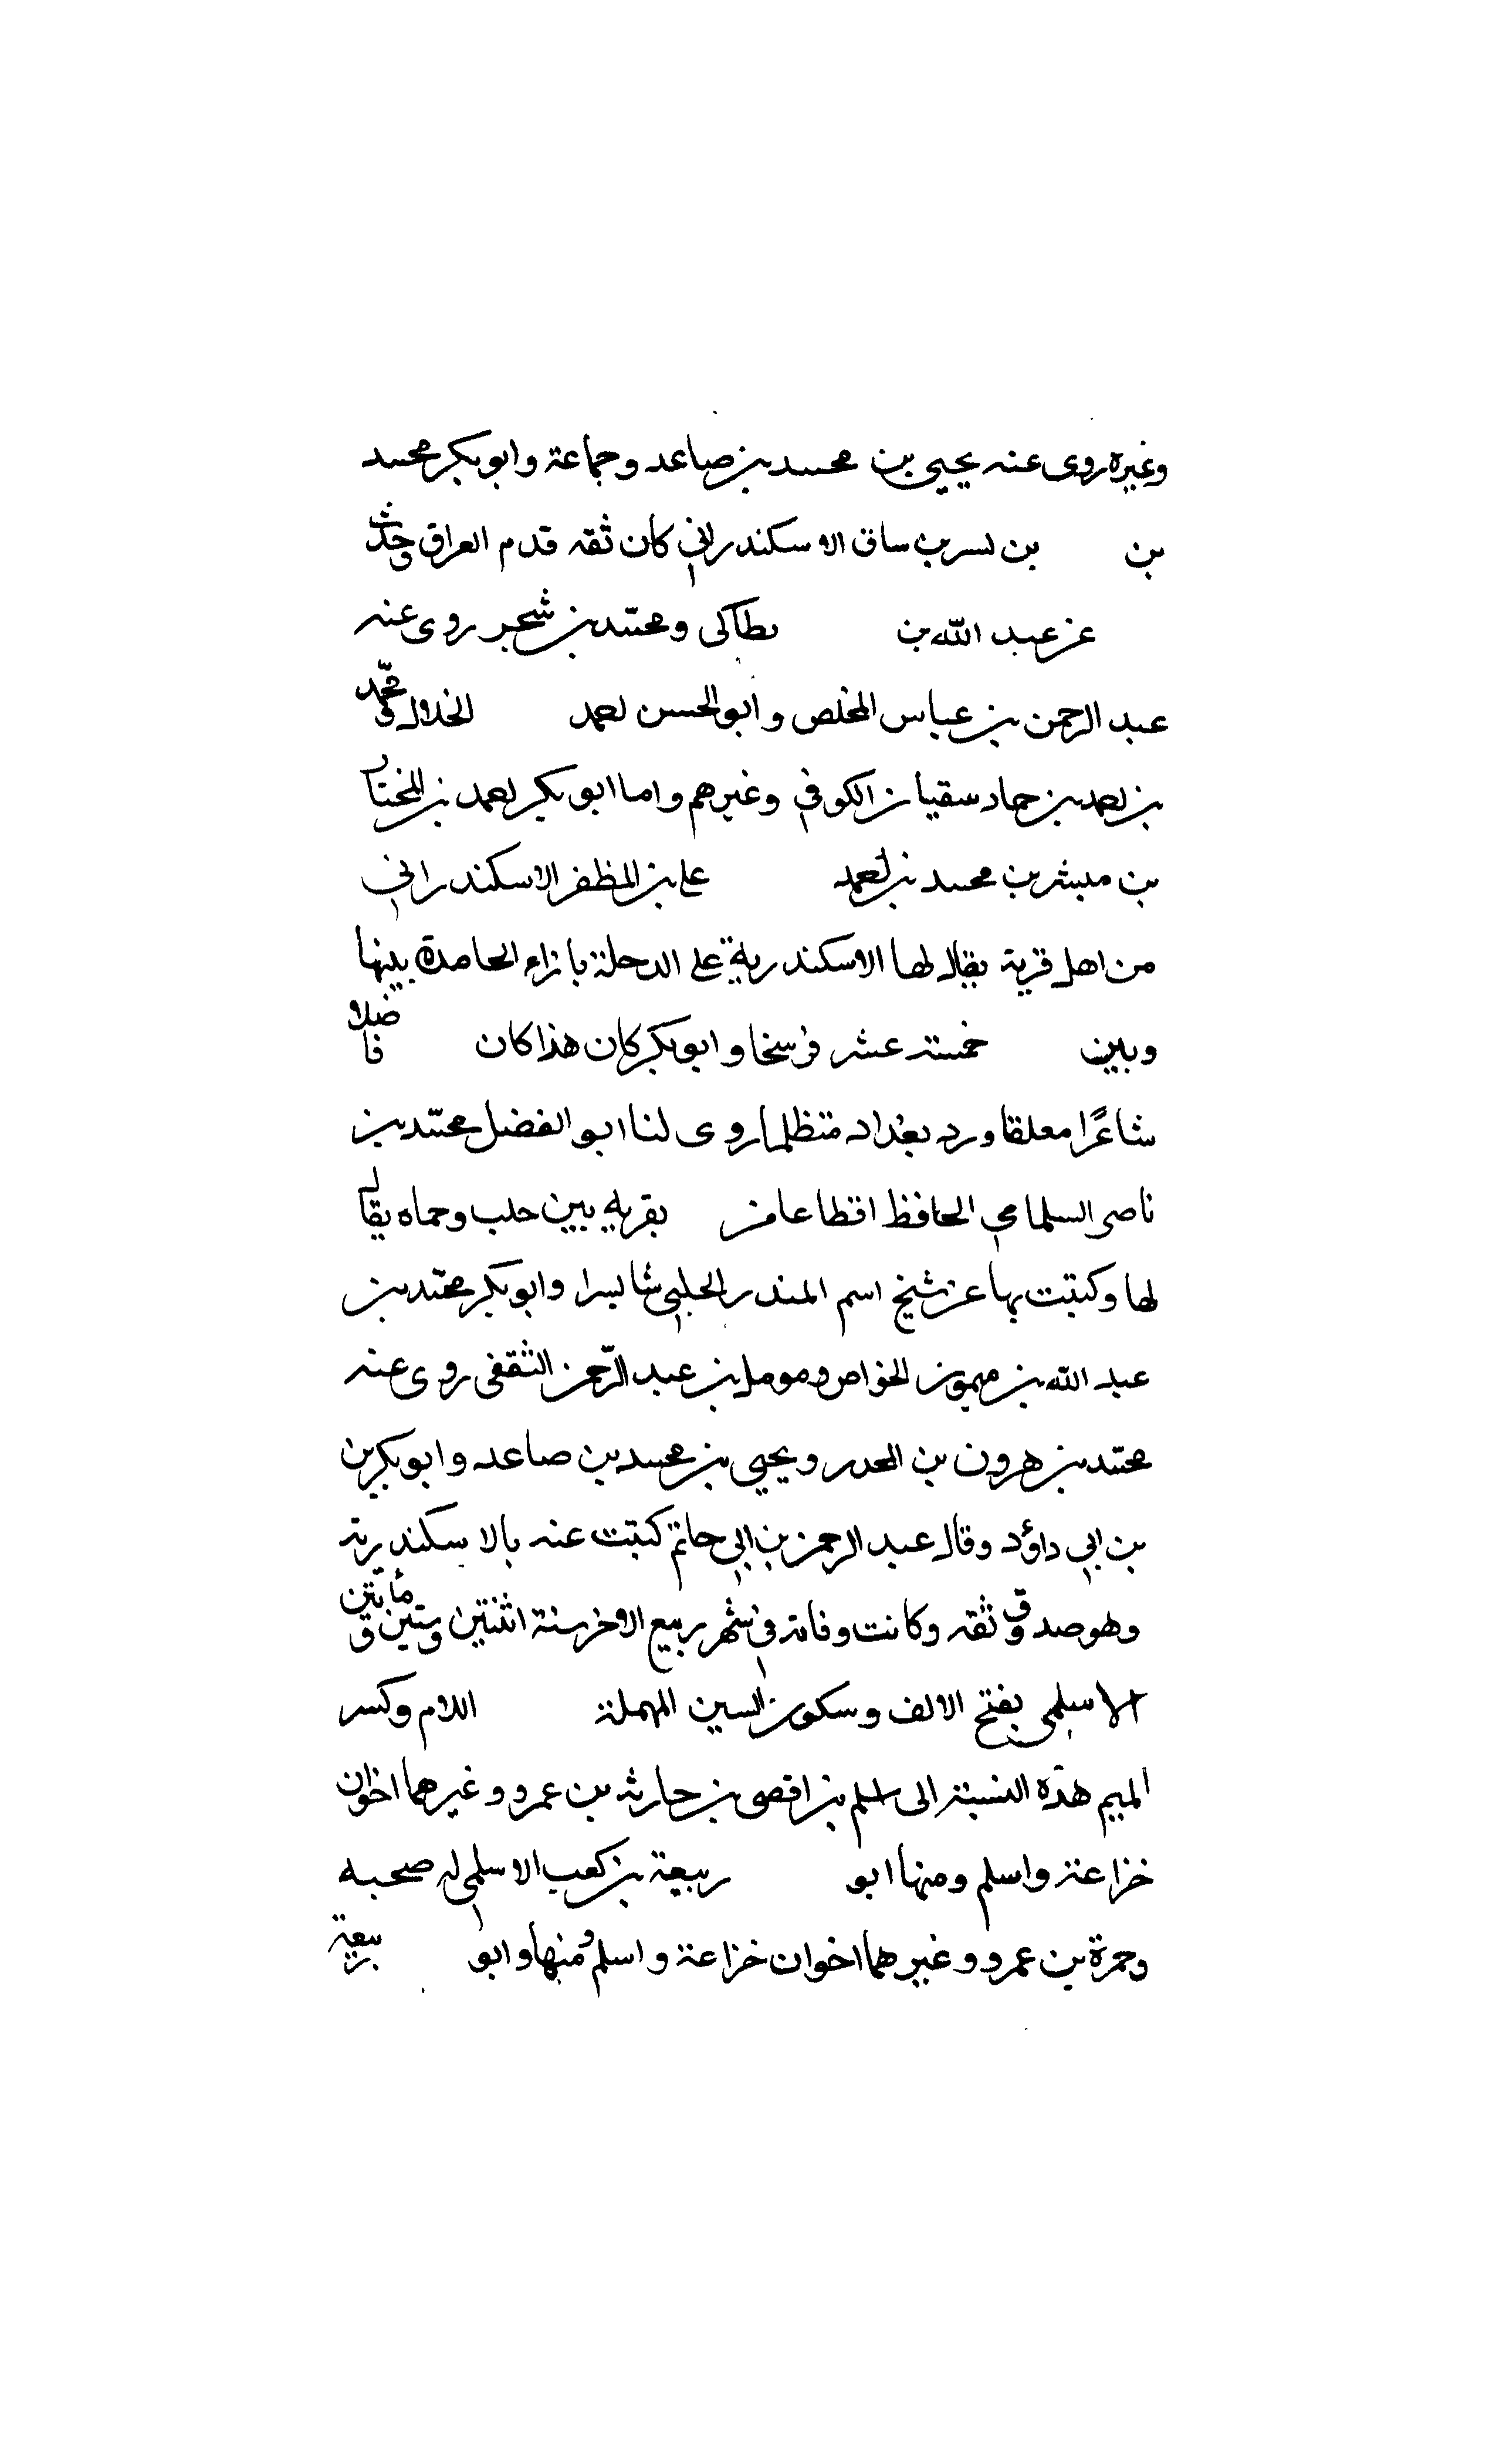 وغيره روى عنه يحيى بن محمد بن صاعد وجماعة وابو بكر محمد
بن بن لسر بن ساق الاسكندراني كان ثقه قدم العراق وحدث
عن عبد الله بن بطاكى ومحمد بن شحير روى عنه
عبد الرحمن بن عباس المخلص وابو الحسن لعمد الخلال ومحمد
بن لعمد بن حماد سفيان الكوفي وغيرهم واما ابو بكر لعمد بن المختار
بن مبشر بن محمد بن لعمد على بن المظفر الاسكندراني
من اهل قرية يقال لها الاسكندرية على الدجلة بازاء الحامدة بينها
وبين خمسة عشر فرسخا وابو بكر كان هذا كان فاضلا
شاعرًا معلقا ورد بغداد متظلما روى لنا ابو الفضل محمد بن
ناصر السلامي الحافظ اقطاعا من بقريه بين حلب وحماه يقال
لها وكتبت بها عن شيخ اسم المنذر الحلبي شا ليسرا وابو بكر محمد بن
عبد الله بن ميمون الخواص ومومل بن عبد الرحمن الثقفى روى عنه
محمد بن هرون بن المحدر ويحيى بن محمد بن صاعد وابو بكر بن
بن ابي داؤد وقال عبد الرحمن بن ابي حاتم كتبت عنه بالاسكندرية
وهو صدوق ثقه وكانت وفاته في شهر ربيع الاخر سنة اثنتين وستين ومأيتين
الاسلمى بفتح الالف وسكون السين المهملة اللام وكسر
الميم هذه النسبة الى اسلم بن اقصى بن حارثه بن عمرو وغيرهما اخوان
خزاعة واسلم ومنها ابو ربيعة بن كعب الاسلمي له صحبه
وحمزة بن عمرو وغيرهما اخوان خزاعة واسلم ومنها وابو بريعة